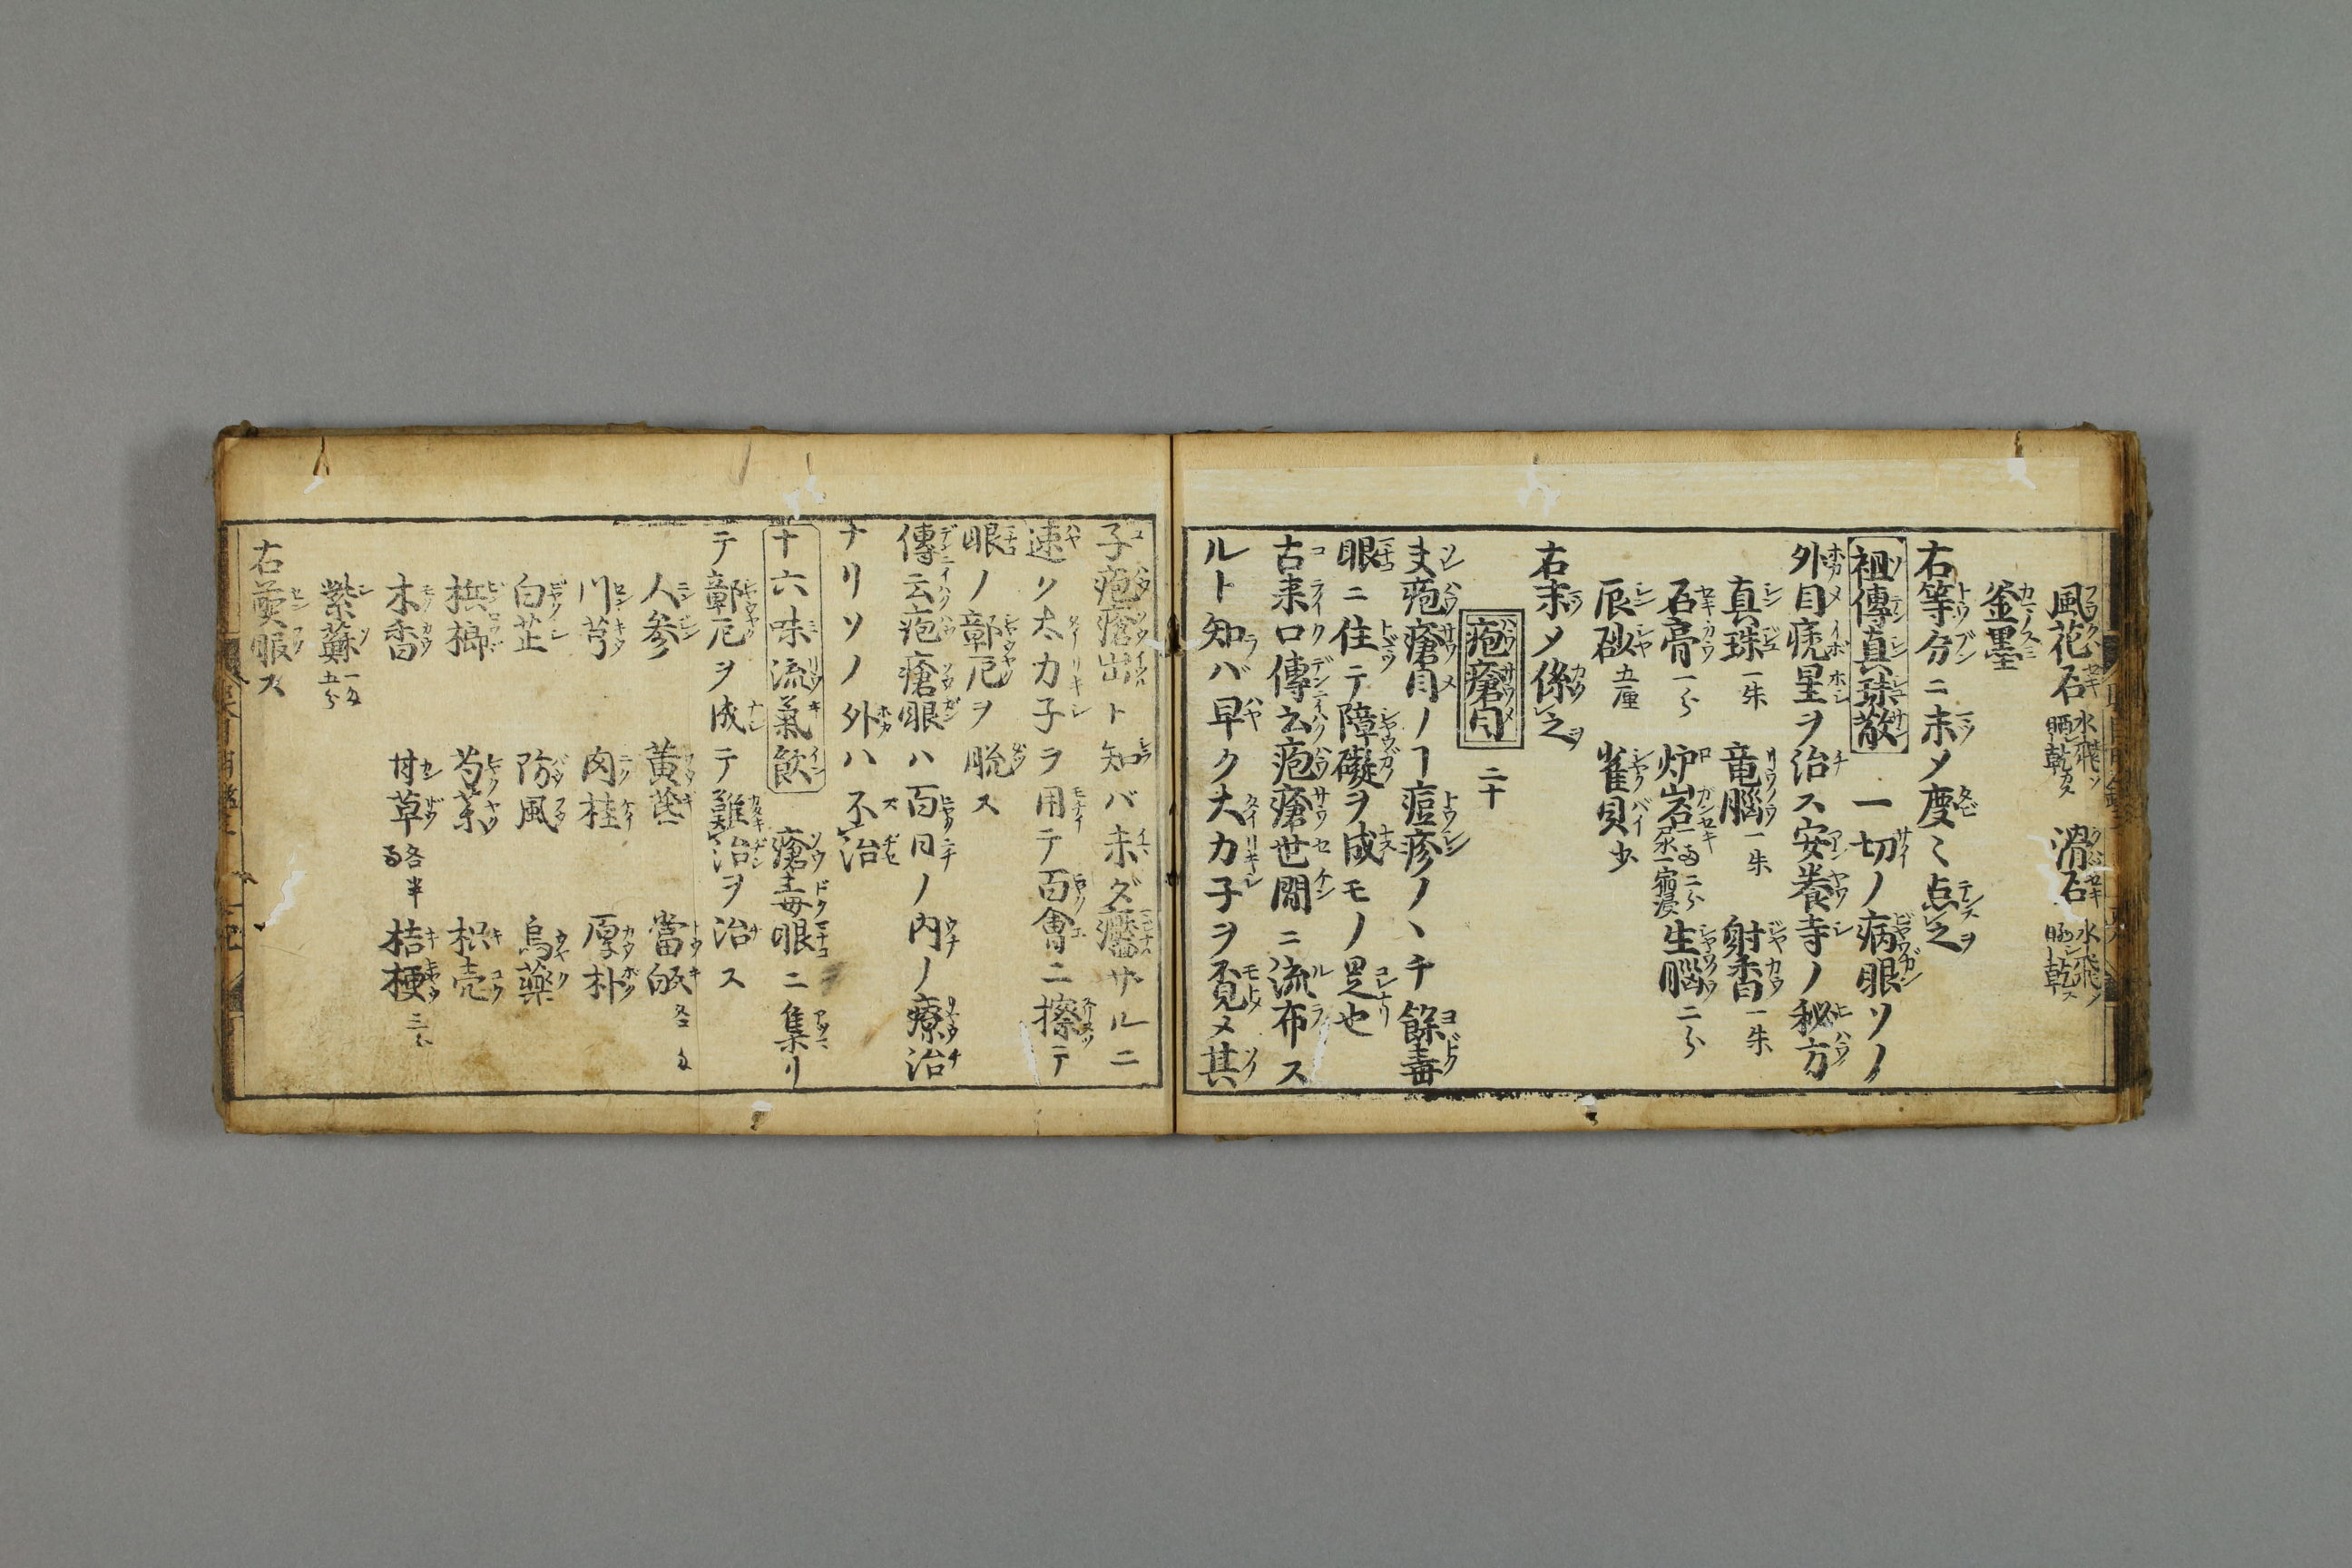 風花石 水飛ソ晒乾カス 滑石 水飛ソ晒シ乾ス
釜墨
右等分ニ末メ度〻点之
祖傳真珠散 一切ノ病眼ソノ
外目疣星ヲ治ス安養寺ノ秘方
真珠 一朱 竜腦 一朱 射香 一朱
石膏 一分 炉岩 一両二分 尿一宿浸 生腦 二分
辰砂 五厘 雀貝 少
右末メ傺之
疱瘡目 二十
夫疱瘡目ノヿ痘疹ノヽチ餘毒
眼ニ住テ障礙ヲ成モノ是也
古来口傳云疱瘡世間ニ流布ス
ルト知バ早ク大力子ヲ覓メ其
子疱瘡出ト知バ未ダサルニ
速ク大力子ヲ用テ百會ニ擦テ
眼ノ鄣厄ヲ脱ス
傳云疱瘡眼ハ百日ノ内ノ療治
ナリソノ外ハ不治
十六味流氣飲 瘡毒眼ニ集リ
テ鄣厄ヲ成テ難治ヲ治ス
人参 黄芪 當皈 各二匁
川芎 肉桂 厚朴
白芷 防風 烏藥
檳榔 芍薬 枳壳
木香 甘草 各半両 桔梗 三分
紫蘇 一匁五分
右煎服ス